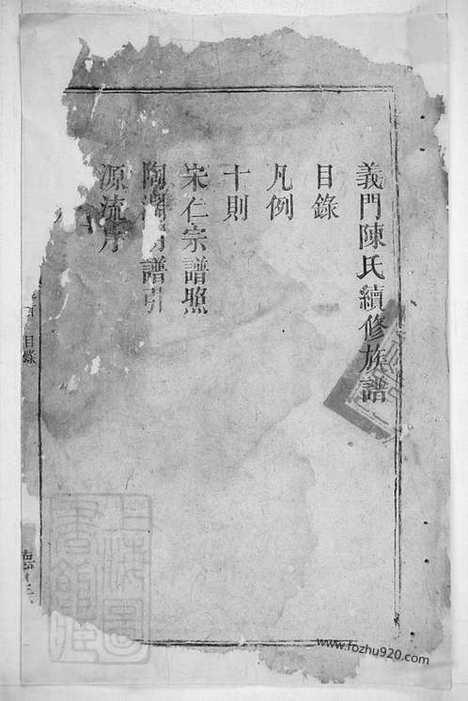 義門陳氏續修族譜
目錄
凡例
十則
宋仁宗譜照
陶 譜引
源流序
目錄
www.fozhu920.com